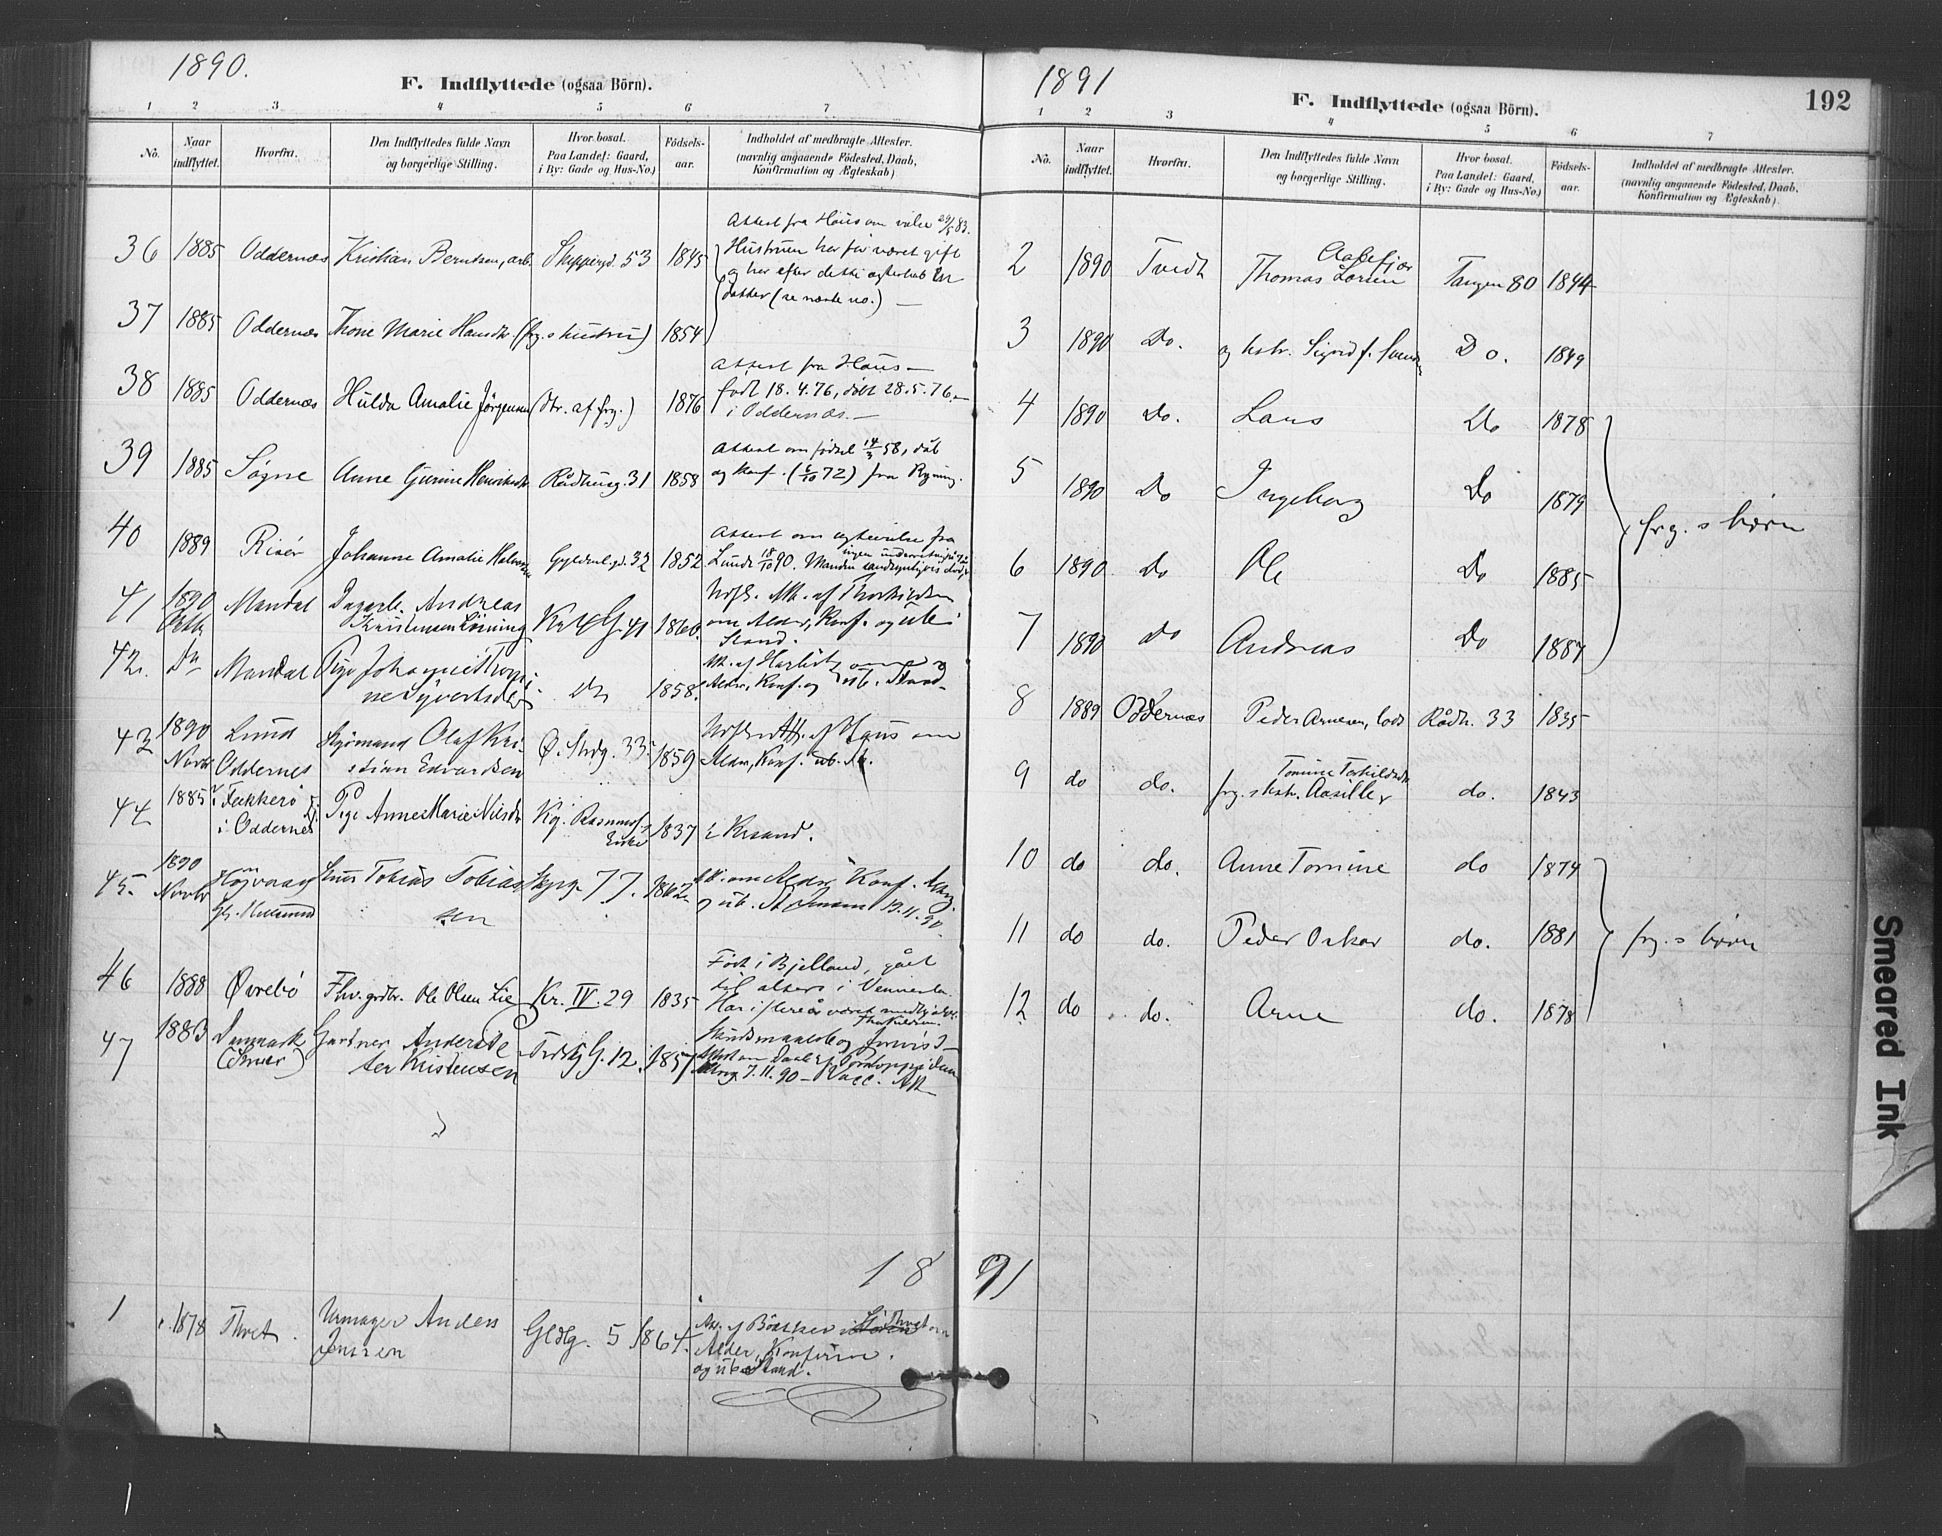 1890.
F. Indflyttede (ogsaa Börn).
1 2 3 4 5 6 7
No. Naar indflyttet. Hvorfra. Den Indflyttedes fulde Navn og borgerlige Stilling. Hvor bosat. Paa Landet: Gaard, i By: Gade og Hus-No.) Födselsaar. Indholdet af medbragte Attester. (navnlig angaaende Födested, Daab, Konfirmation og Ægteskab)
36 1885 Oddernæs Kristian Berntsen, arb. Skippergd. 53 1845 Attest fra Høus om vielse 29/5 83.
Hustruen har før været gift
og har efter dette ægteskab En
datter (se næste no.) —
37 1885 Oddernæs Thone Marie Hansdtr (frg.s hustru) 1854
38 1885 Oddernæs Hulda Amalie Jörgensen (dtr. af frg.) 1876 Attest fra Høus —
født 18.4.76, døbt 28.5.76.—
i Oddernæs.—
39 1885 Søgne Anne Gurine Henriksdtr Rådhusg. 31 1858 Attest om fødsel 14/3 58, dåb
og konf. (6/10 72) fra Rynning.
40 1889 Risør Johanne Amalie Gyldenl.gd. 32 1852 Attest om ægtevielse fra
Lunde 18/10 90. Manden sandsynligvis død.
41 1890 Oktb Mandal Dagarb. Andreas
Kristensen Kr 4 G. 41 1860. Attest af
om Alder, Konf. og ub.
Stand.
42. Do Mandal Pige Johanne
Do 1858. Att. af om
Alder, Konf. og ub. Stand.
43 1890 Novbr Lund Oddernes Styrmand Olaf Kri-
stian Edvardsen Ø. Strdg. 33. 1859 om
Alder, Konf. ub. St.
44 1885 Flekkerø i Oddernes Pige Anne Marie Nilsdtr Kg. Rasmus
Enke 1837 i Krsand.
45. 1890 Novbr Høivaag Tobias Tobias-
sen Skpg. 77. 1862 Att. om Alder, Konf.
og ub. St 13.11.90.
46 1888 Øvrebø Fhv. grdbr. Ole Olsen Lie Kr. IV. 29 1835 Født i Bjelland, gået
til alters i Vennesla.
Har i flere år været
47 1883 Danmark Gartner Anders Pe-
ter Kristensen G. 12. 1857
Attest om Daab
7.11.90 — Vacc. Att
18 91
1 1878 Thvet. Urmager Anders
Jensen Gldlg. 5 1864. Att. af Bødtker i Thvet om
Alder, Konfirm.
og ub. Stand.
1891
F. Indflyttede (ogsaa Börn).
192
1 2 3 4 5 6 7
No. Naar indflyttet. Hvorfra. Den Indflyttedes fulde Navn og borgerlige Stilling. Hvor bosat. Paa Landet: Gaard, i By: Gade og Hus-No.) Födselsaar. Indholdet af medbragte Attester. (navnlig angaaende Födested, Daab, Konfirmation og Ægteskab).
2 1890 Tvedt Aalefjær
Thomas Larsen Tangen 80 1844
3 1890 Do. og hstr. Sigrid f. Do. 1849
4 1890 Do. Lars Do 1878
5 1890 Do Ingeborg Do 1879
frg.s børn
6 1890 Do Ole Do 1885
7 1890 Do Andreas Do 1887
8 1889 Oddernæs Peder Arnesen, lods Rådh. 33 1835
9 do do. Tomine Torkildsdtr
frg.s hstr. do. 1843
10 do do. Anne Tomine do 1874
11 do do. Peder Oskar do. 1881 frg.s børn
12 do do. Arne do. 1878
Smeared Ink